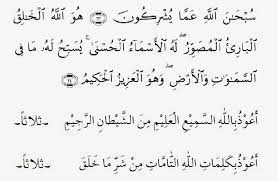 سُبْحَٰنَ ٱللَّهِ عَمَّا يُشْرِكُونَ ﴿٢٣﴾ هُوَ ٱللَّهُ ٱلْخَٰلِقُ
ٱلْبَارِئُ ٱلْمُصَوِّرُ ۖ لَهُ ٱلْأَسْمَآءُ ٱلْحُسْنَىٰ ۚ يُسَبِّحُ لَهُۥ مَا فِى
ٱلسَّمَٰوَٰتِ وَٱلْأَرْضِ ۖ وَهُوَ ٱلْعَزِيزُ ٱلْحَكِيمُ ﴿٢٤﴾
أَعُوذُ بِاللَّهِ السَّمِيعِ الْعَلِيمِ مِنَ الشَّيْطَانِ الرَّجِيمِ -ثلاثاً-
أَعُوذُ بِكَلِمَاتِ اللَّهِ التَّامَّاتِ مِنْ شَرِّ مَا خَلَقَ -ثلاثاً-